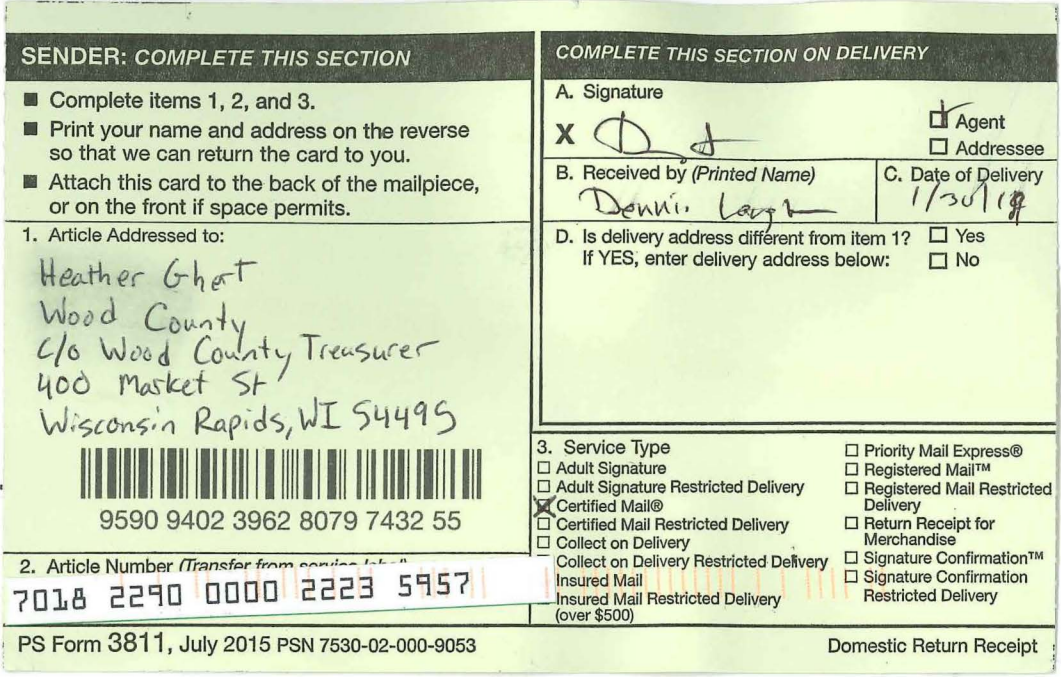 SENDER: COMPLETE THIS SECTION
■ Complete items 1, 2, and 3.
■ Print your name and address on the reverse
so that we can return the card to you.
■ Attach this card to the back of the mailpiece,
or on the front if space permits.
1. Article Addressed to:
Heather
Wood County
c/o Wood County Treasurer
400 Market St
Wisconsin Rapids, WI 54495
9590 9402 3962 8079 7432 55
2. Article Number (Transfer from service label)
7018 2290 0000 2223 5957
COMPLETE THIS SECTION ON DELIVERY
A. Signature
X
☒ Agent
☐ Addressee
B. Received by (Printed Name)
Dennis
C. Date of Delivery
1/30/19
D. Is delivery address different from item 1? ☐ Yes
If YES, enter delivery address below: ☐ No
3. Service Type
☐ Adult Signature
☐ Adult Signature Restricted Delivery
☒ Certified Mail®
☐ Certified Mail Restricted Delivery
☐ Collect on Delivery
☐ Collect on Delivery Restricted Delivery
Insured Mail
Insured Mail Restricted Delivery
(over $500)
☐ Priority Mail Express®
☐ Registered Mail™
☐ Registered Mail Restricted
Delivery
☐ Return Receipt for
Merchandise
☐ Signature Confirmation™
☐ Signature Confirmation
Restricted Delivery
PS Form 3811, July 2015 PSN 7530-02-000-9053
Domestic Return Receipt